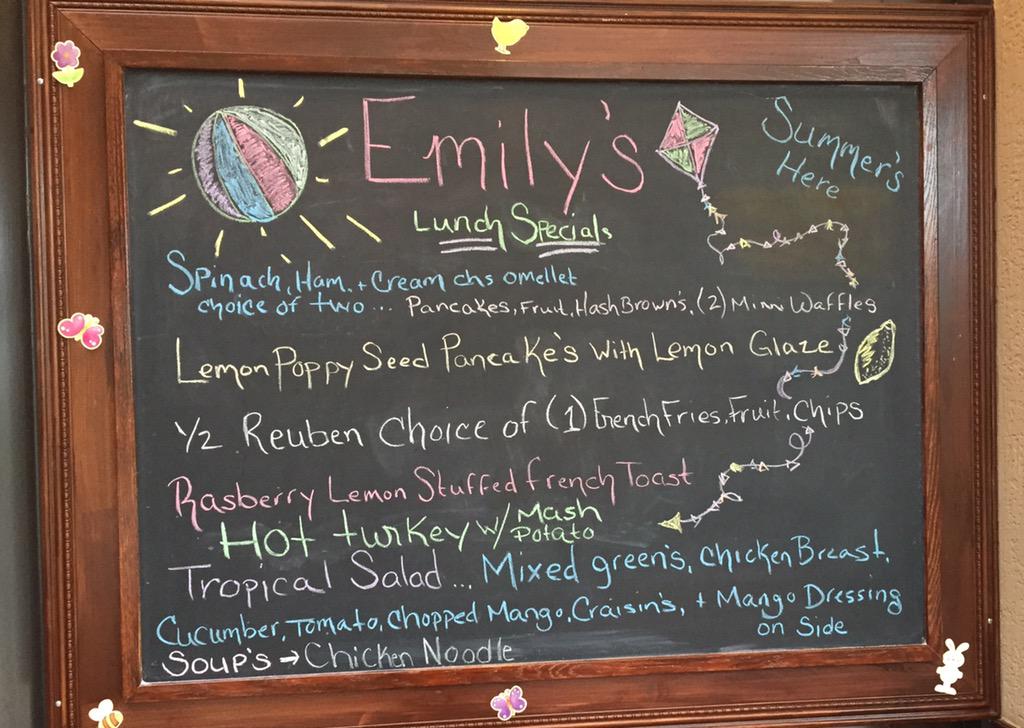 Emily's
Summer's
Here
Lunch Specials
Spinach, Ham, + Cream chs omellet
choice of two ... Pancakes, Fruit, HashBrown's, (2) Mini Waffles
Lemon Poppy Seed Pancake's with Lemon Glaze
1/2 Reuben Choice of (1) French Fries, Fruit, Chips
Rasberry Lemon Stuffed french Toast
Hot turkey w/ Mash
Potato
Tropical Salad ... Mixed green's, Chicken Breast,
Cucumber, Tomato, Chopped Mango, Craisin's, + Mango Dressing
on Side
Soup's → Chicken Noodle